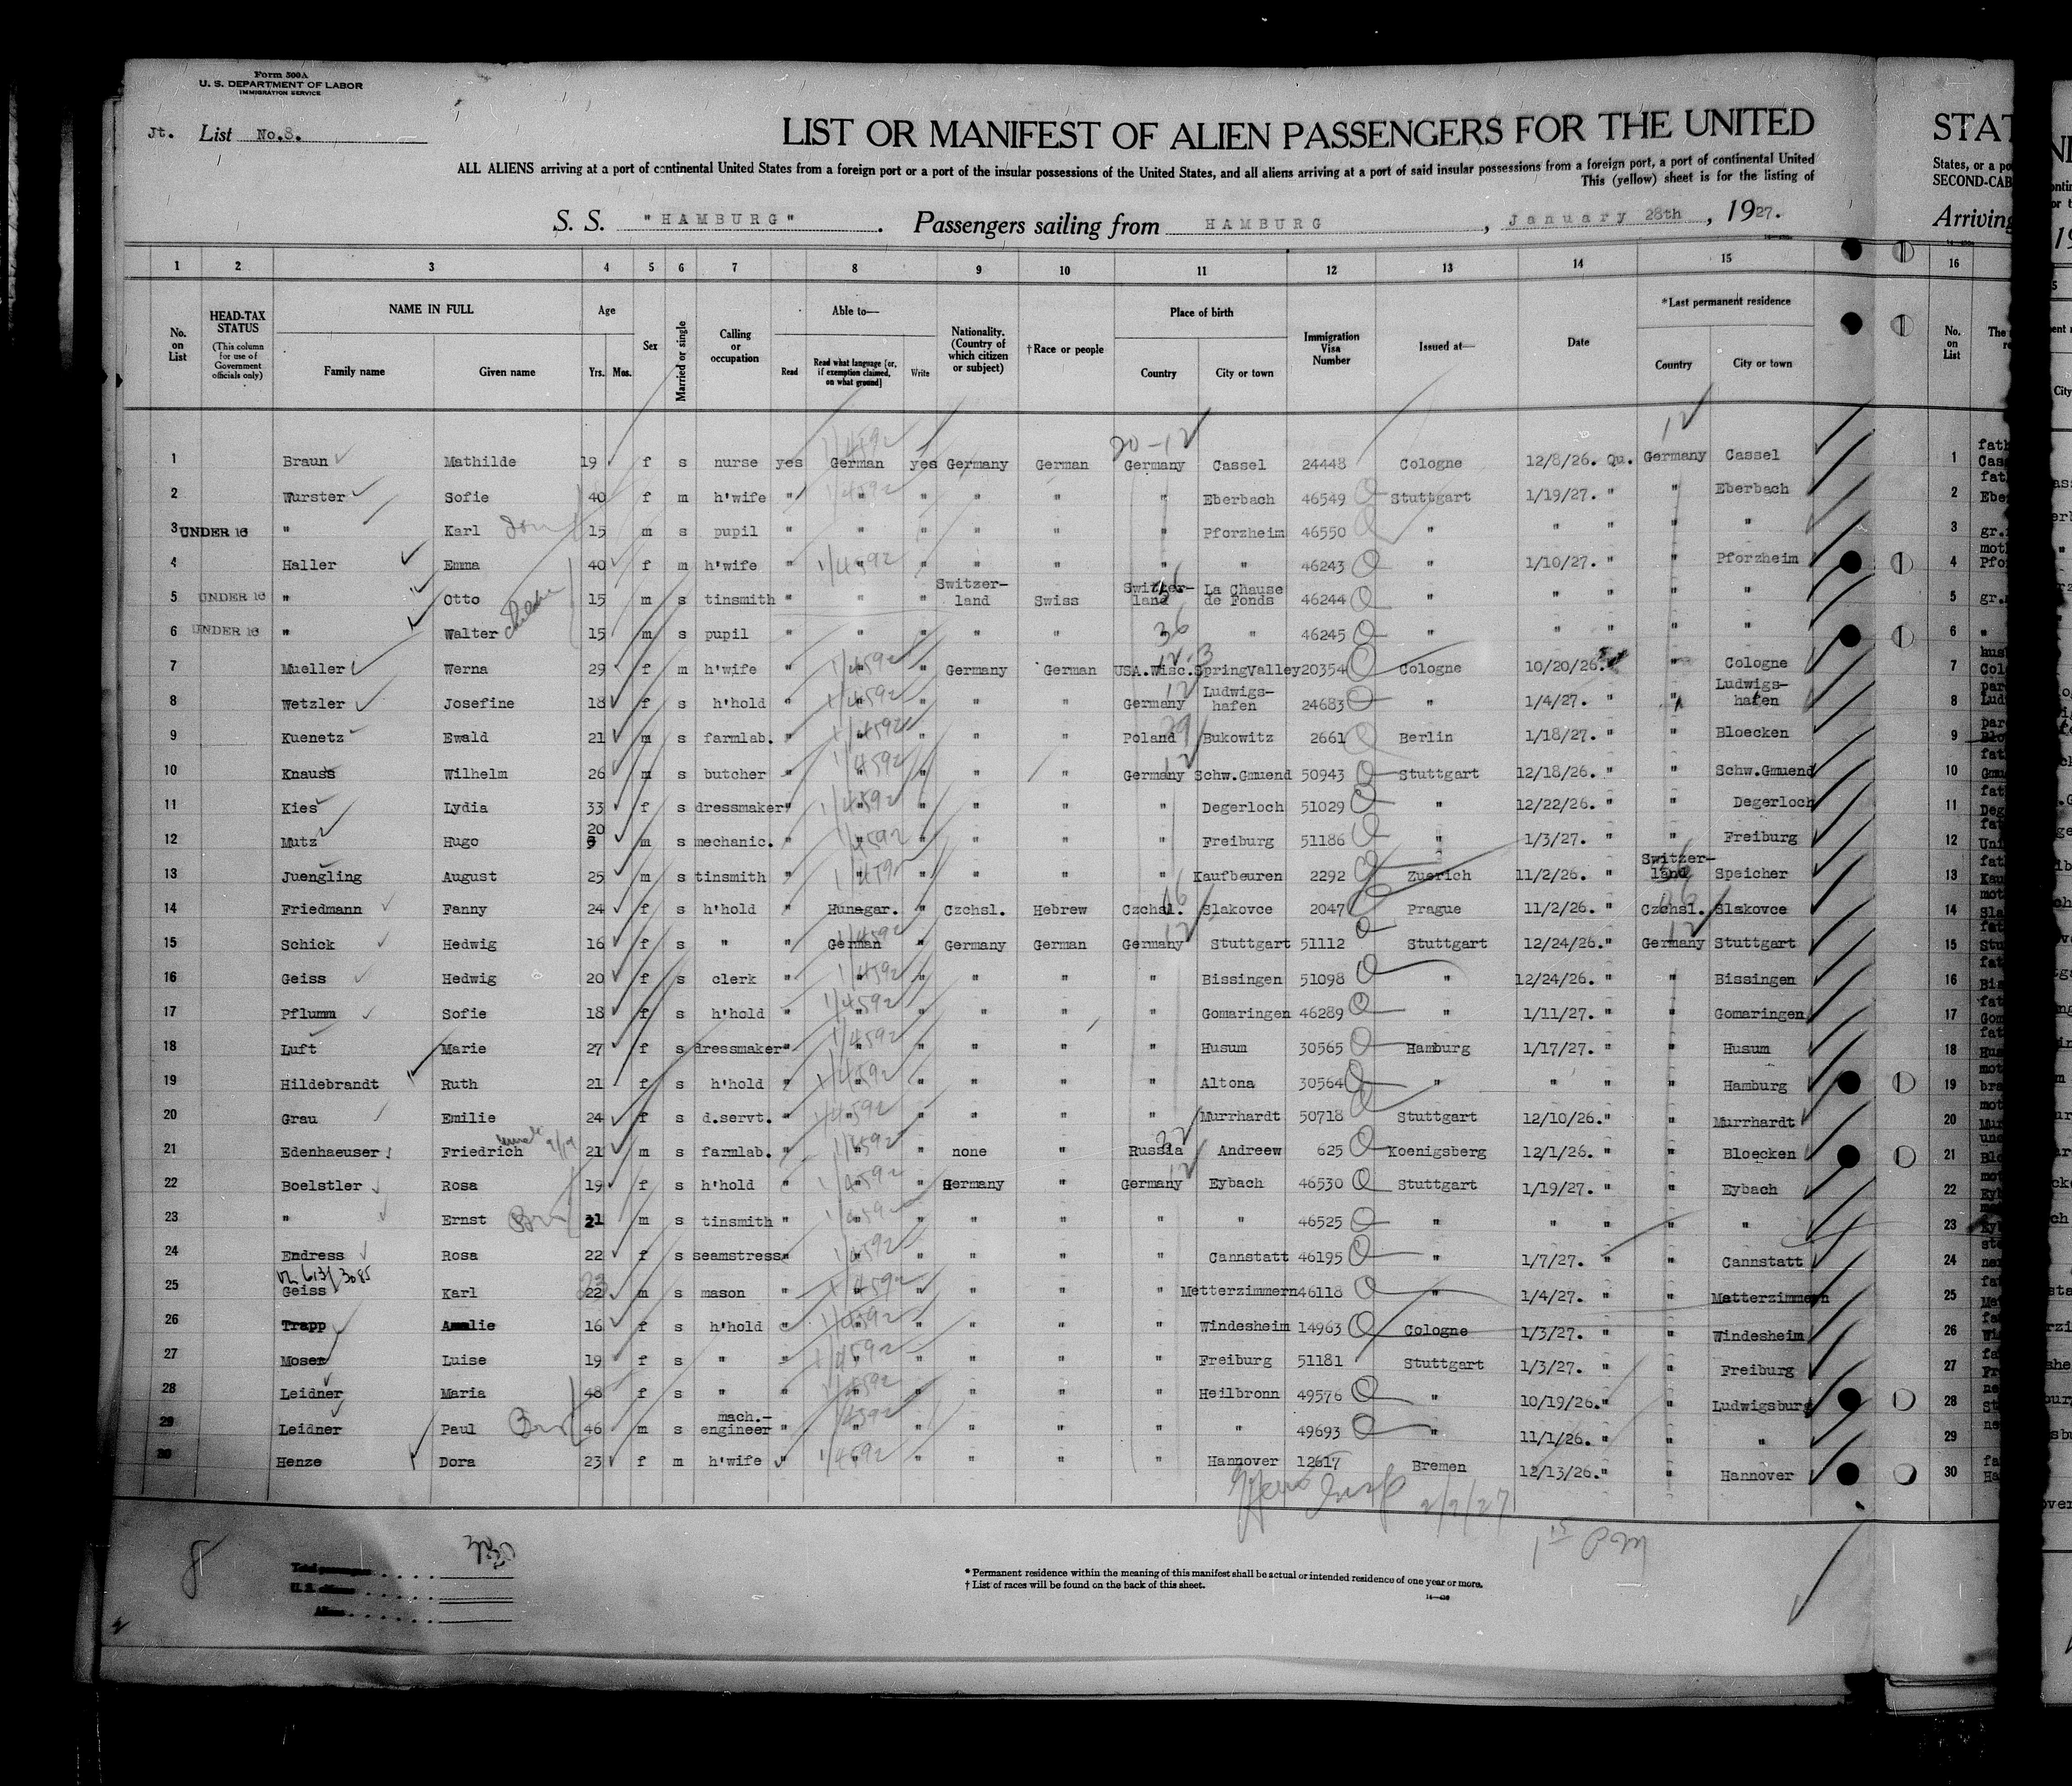 Form 500A
U. S. DEPARTMENT OF LABOR
IMMIGRATION SERVICE
Jt. List No.8.
LIST OR MANIFEST OF ALIEN PASSENGERS FOR THE UNITED
ALL ALIENS arriving at a port of continental United States from a foreign port or a port of the insular possessions of the United States, and all aliens arriving at a port of said insular possessions from a foreign port, a port of continental United
This (yellow) sheet is for the listing of
S. S. "HAMBURG". Passengers sailing from HAMBURG, January 28th, 1927.
STAT
States, or a po
SECOND-CAB
Arriving
1 2 3 4 5 6 7 8 9 10 11 12 13 14 15 16
No. on List HEAD-TAX STATUS (This column for use of Government officials only) NAME IN FULL Family name Given name Age Yrs. Mos. Sex Married or single Calling or occupation Able to— Read Read what language [or, if exemption claimed, on what ground] Write Nationality. (Country of which citizen or subject) †Race or people Place of birth Country City or town Immigration Visa Number Issued at— Date *Last permanent residence Country City or town No. on List
20-12 12
1 Braun Mathilde 19 f s nurse yes German yes Germany German Germany Cassel 24448 Cologne 12/8/26. Qu. Germany Cassel 1
2 Wurster Sofie 40 f m h'wife " " " " " " Eberbach 46549 Stuttgart 1/19/27. " " Eberbach 2
3 UNDER 16 " Karl 15 m s pupil " " " " " " Pforzheim 46550 " " " " " 3
4 Haller Emma 40 f m h'wife " " " " " " " 46243 " 1/10/27. " " Pforzheim 4
5 UNDER 16 " Otto 15 m s tinsmith " " " Switzer-land Swiss Switzer-land La Chause de Fonds 46244 " " " " " 5
6 UNDER 16 " Walter 15 m s pupil " " " " " " " 46245 " " " " " 6
7 Mueller Werna 29 f m h'wife " " " Germany German USA.Wisc. SpringValley 20354 Cologne 10/20/26. " Cologne 7
8 Wetzler Josefine 18 f s h'hold " " " " " Germany Ludwigs-hafen 24683 " 1/4/27. " " Ludwigs-hafen 8
9 Kuenetz Ewald 21 m s farmlab. " " " " " Poland Bukowitz 2661 Berlin 1/18/27. " " Bloecken 9
10 Knauss Wilhelm 26 m s butcher " " " " " Germany Schw.Gmuend 50943 Stuttgart 12/18/26. " " Schw.Gmuend 10
11 Kies Lydia 33 f s dressmaker " " " " " " Degerloch 51029 " 12/22/26. " " Degerloch 11
12 Mutz Hugo 20 m s mechanic. " " " " " " Freiburg 51186 " 1/3/27. " " Freiburg 12
13 Juengling August 25 m s tinsmith " " " " " " Kaufbeuren 2292 Zuerich 11/2/26. " Switzer-land Speicher 13
14 Friedmann Fanny 24 f s h'hold " Hunagar. " Czchsl. Hebrew Czchsl. Slakovce 2047 Prague 11/2/26. " Czchsl. Slakovce 14
15 Schick Hedwig 16 f s " " German " Germany German Germany Stuttgart 51112 Stuttgart 12/24/26. " Germany Stuttgart 15
16 Geiss Hedwig 20 f s clerk " " " " " " Bissingen 51098 " 12/24/26. " " Bissingen 16
17 Pflumm Sofie 18 f s h'hold " " " " " " Gomaringen 46289 " 1/11/27. " " Gomaringen 17
18 Luft Marie 27 f s dressmaker " " " " " " Husum 30565 Hamburg 1/17/27. " " Husum 18
19 Hildebrandt Ruth 21 f s h'hold " " " " " " Altona 30564 " " " " Hamburg 19
20 Grau Emilie 24 f s d.servt. " " " " " " Murrhardt 50718 Stuttgart 12/10/26. " " Murrhardt 20
21 Edenhaeuser Friedrich 21 m s farmlab. " " " none " Russia Andreew 625 Koenigsberg 12/1/26. " " Bloecken 21
22 Boelstler Rosa 19 f s h'hold " " " Germany " Germany Eybach 46530 Stuttgart 1/19/27. " " Eybach 22
23 " Ernst 21 m s tinsmith " " " " " " " 46525 " " " " " 23
24 Endress Rosa 22 f s seamstress " " " " " " Cannstatt 46195 " 1/7/27. " " Cannstatt 24
25 Geiss Karl 22 m s mason " " " " " " Metterzimmern 46118 " 1/4/27. " " Metterzimmern 25
26 Trapp Amalie 16 f s h'hold " " " " " " Windesheim 14963 Cologne 1/3/27. " " Windesheim 26
27 Moser Luise 19 f s " " " " " " " Freiburg 51181 Stuttgart 1/3/27. " " Freiburg 27
28 Leidner Maria 48 f s " " " " " " " Heilbronn 49576 " 10/19/26. " " Ludwigsburg 28
29 Leidner Paul 46 m s mach.-engineer " " " " " " " 49693 " 11/1/26. " " " 29
30 Henze Dora 23 f m h'wife " " " " " " Hannover 12617 Bremen 12/13/26. " " Hannover 30
2/9/27
8
Total passengers
U. S. citizens
Aliens
* Permanent residence within the meaning of this manifest shall be actual or intended residence of one year or more.
† List of races will be found on the back of this sheet.